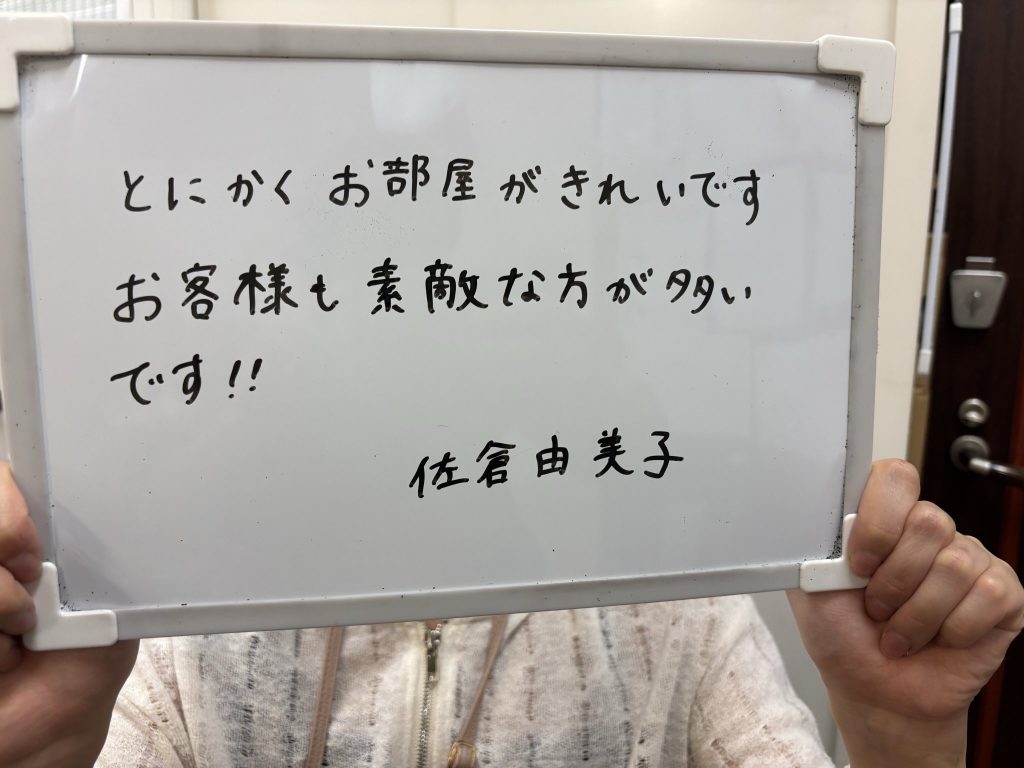 とにかくお部屋がきれいです
お客様も素敵な方が多い
です!!
佐倉由美子